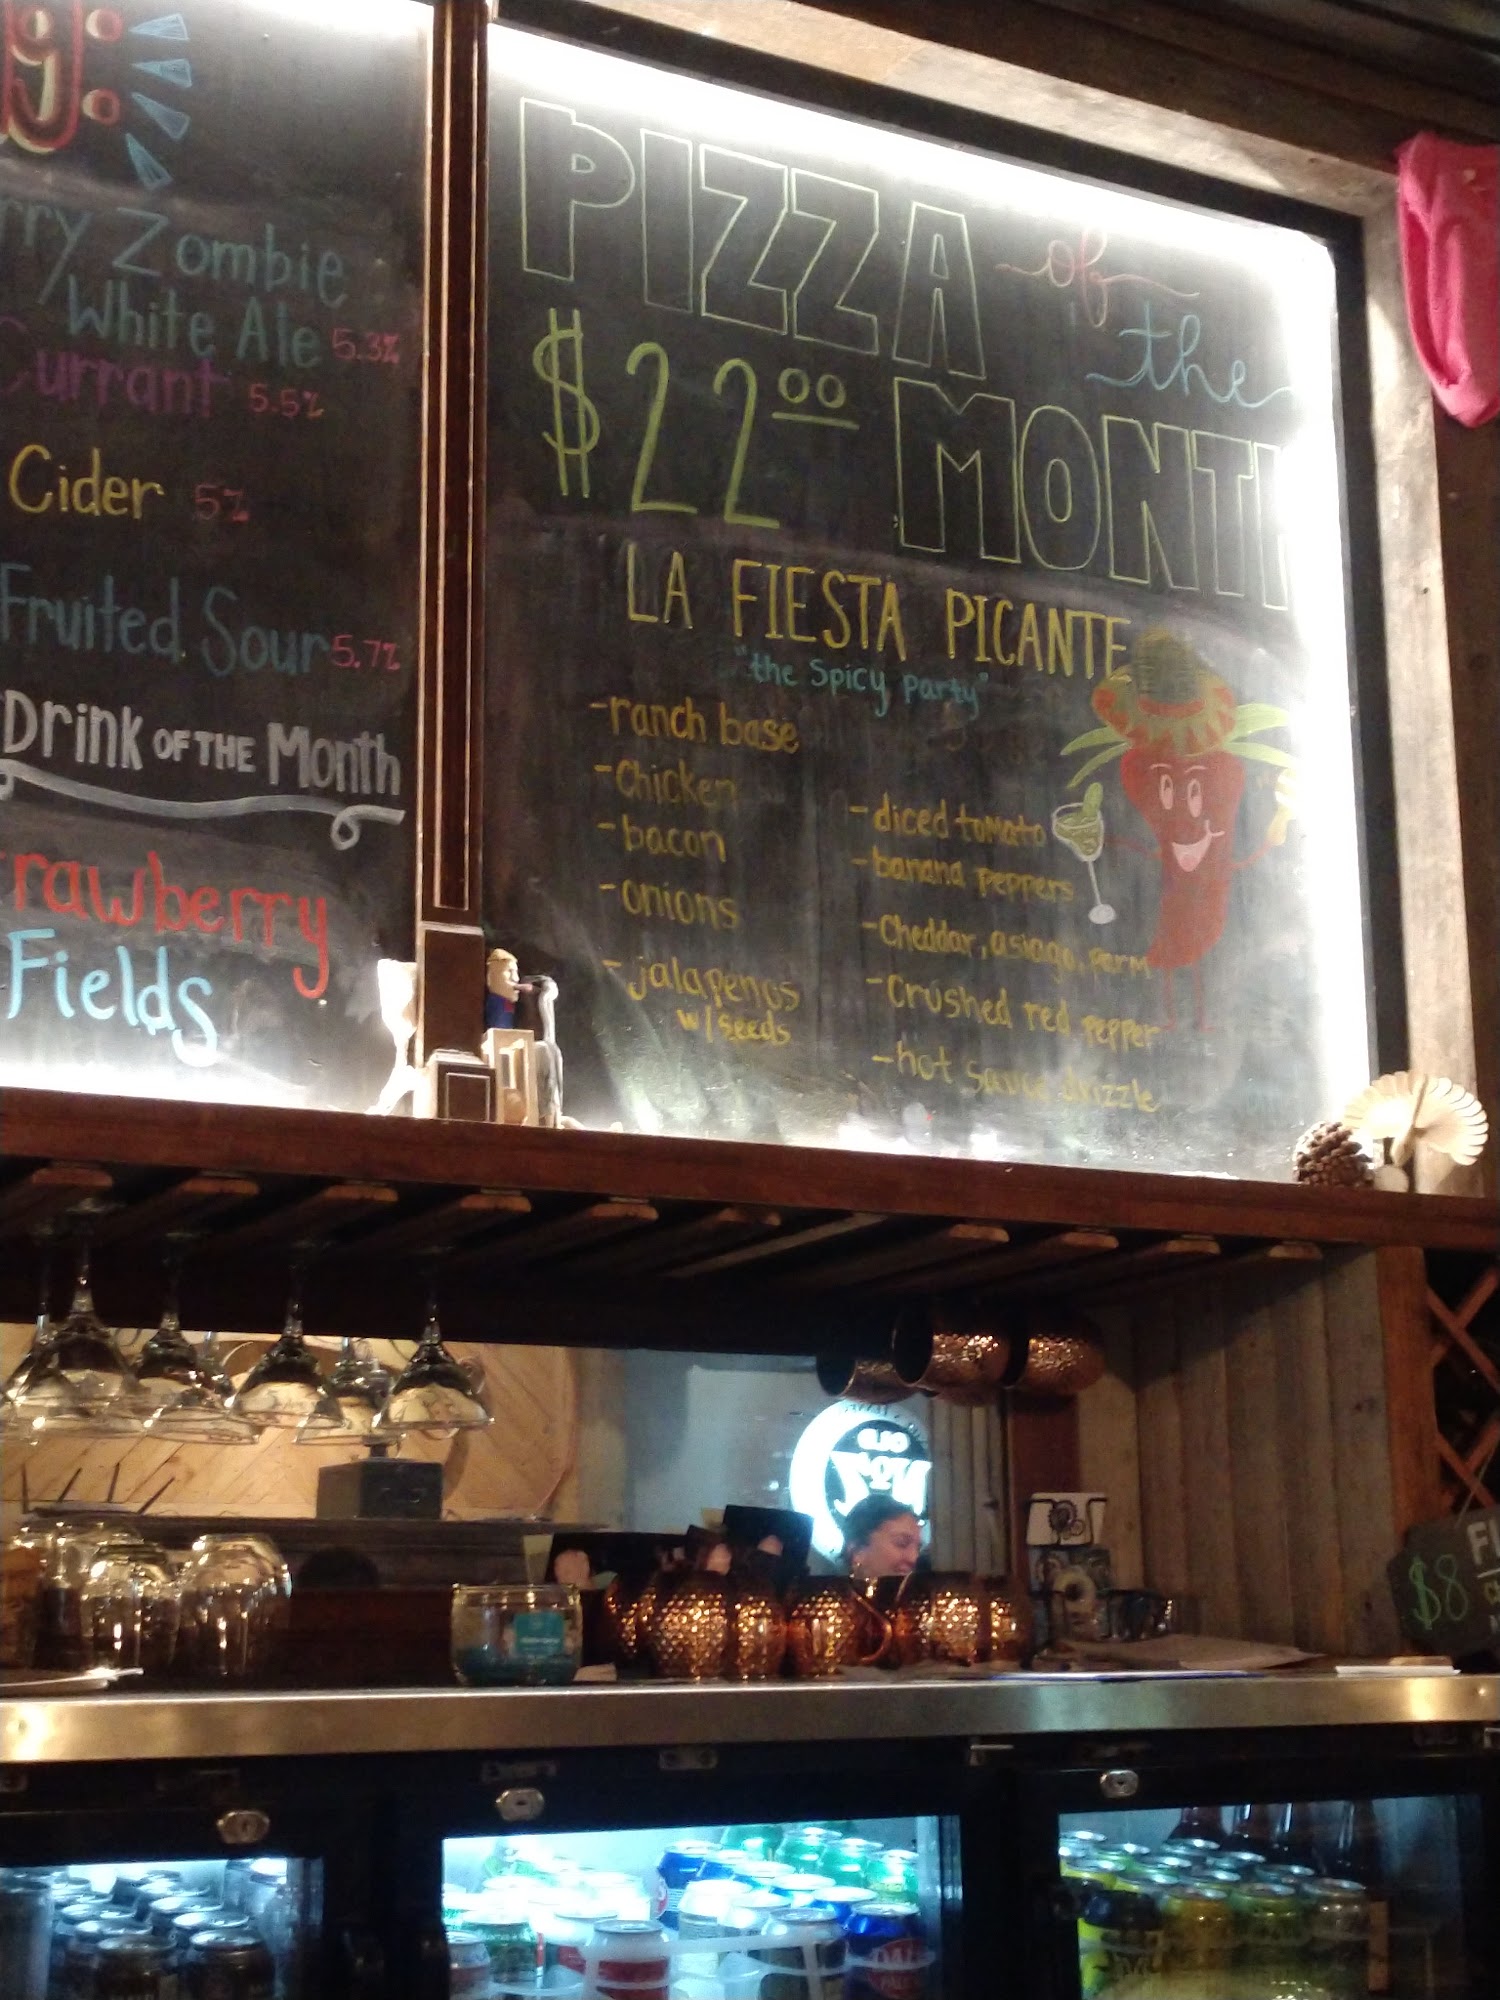 Zombie
White Ale 5.3%
Currant 5.5%
Cider 5%
Fruited Sour 5.7%
Drink OF THE Month
rawberry
Fields
PIZZA of the
$22.00 MONT
LA FIESTA PICANTE
"the Spicy Party"
-ranch base
-Chicken
-bacon
-onions
-jalapenos
w/seeds
-diced tomato
-banana peppers
-Cheddar, asiago, parm
-Crushed red pepper
-hot sauce drizzle
OLD
$8